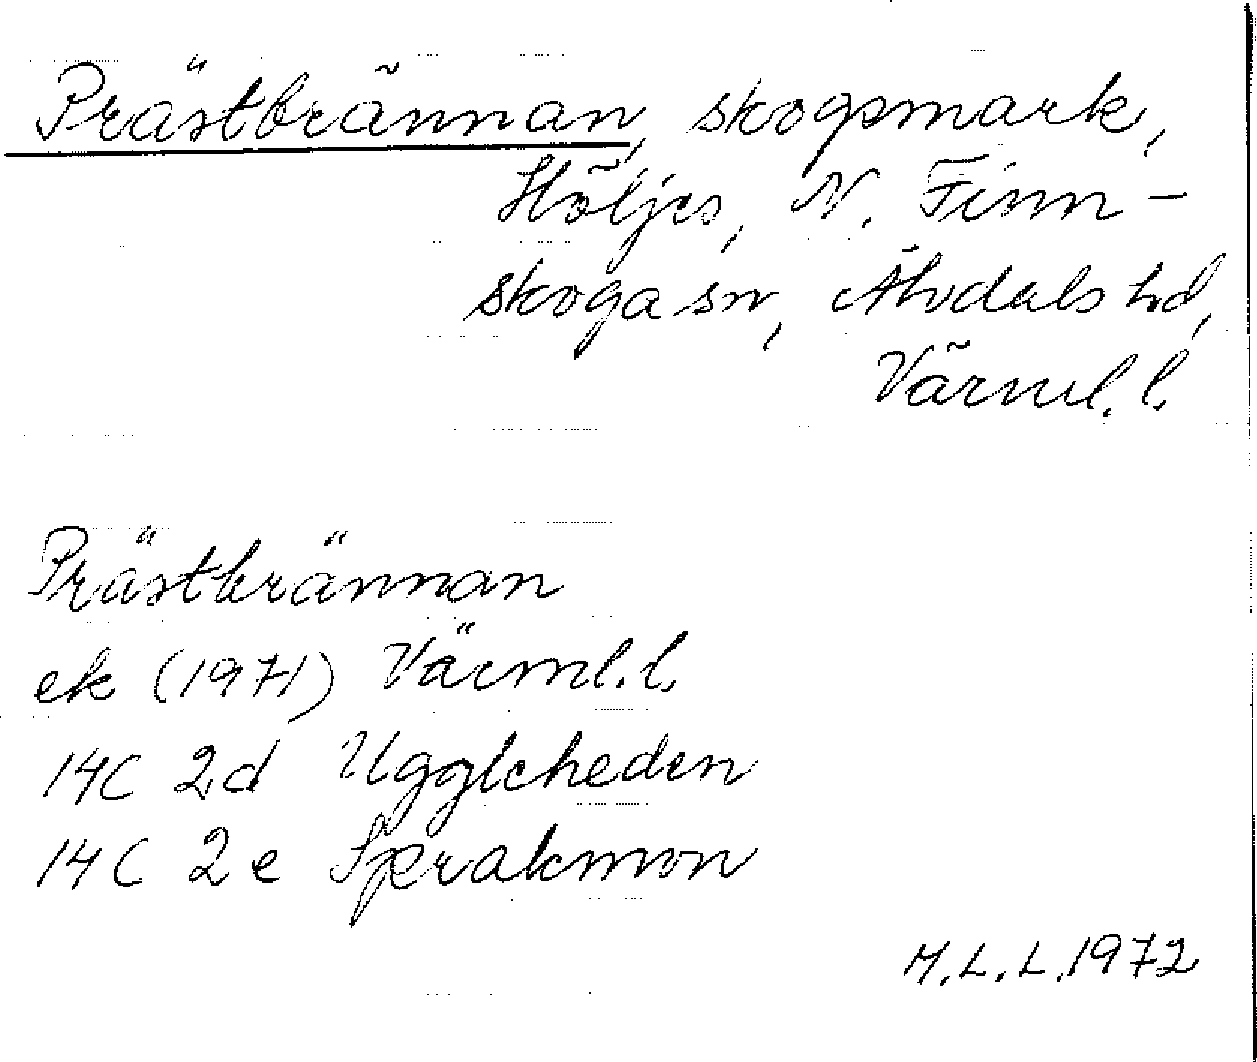 Prästbrännan, skogsmark,
Höljes, N. Finn-
skoga sn, Älvdals hd,
Värml. l.
Prästbrännan
ek (1971) Värml. l.
14C 2d Uggleheden
14C 2e Sprakmon
M.L.L. 1972